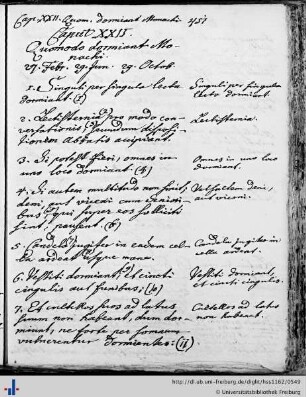 Cap. XXII. Quom. dormiant Monachi. 451
Caput XXII.
Quomodo dormiant Mo-
nachi.
27. Febr. 29. Jun. 29. Octob.
1. Singuli per singula lecta
dormiant. (1)
Singuli per singula
lecta dormiant.
2. Lectisternia pro modo con-
versationis, secundum disposi-
tionem Abbatis accipiant.
Lectisternia.
3. Si potest fieri, omnes in
uno loco dormiant. (4)
Omnes in uno loco
dormiant.
4. Si autem multitudo non sinit,
deni, aut viceni cum seniori-
bus, qui super eos solliciti
sint, pausent. (6)
Vel saltem deni,
aut viceni.
5. Candela jugiter in eadem cel-
la ardeat usque mane.
Candela jugiter in
cella ardeat.
6. Vestiti dormiant, et cincti
cingulis aut funibus; (10)
Vestiti dormiant,
et cincti cingulis.
7. Et cultellos suos ad latus
suum non habeant, dum dor-
miunt, ne forte per somnum
vulnerentur dormientes: (11)
Cultellos ad latus
non habeant.
http://dl.ub.uni-freiburg.de/diglit/hs1162/0549
© Universitätsbibliothek Freiburg